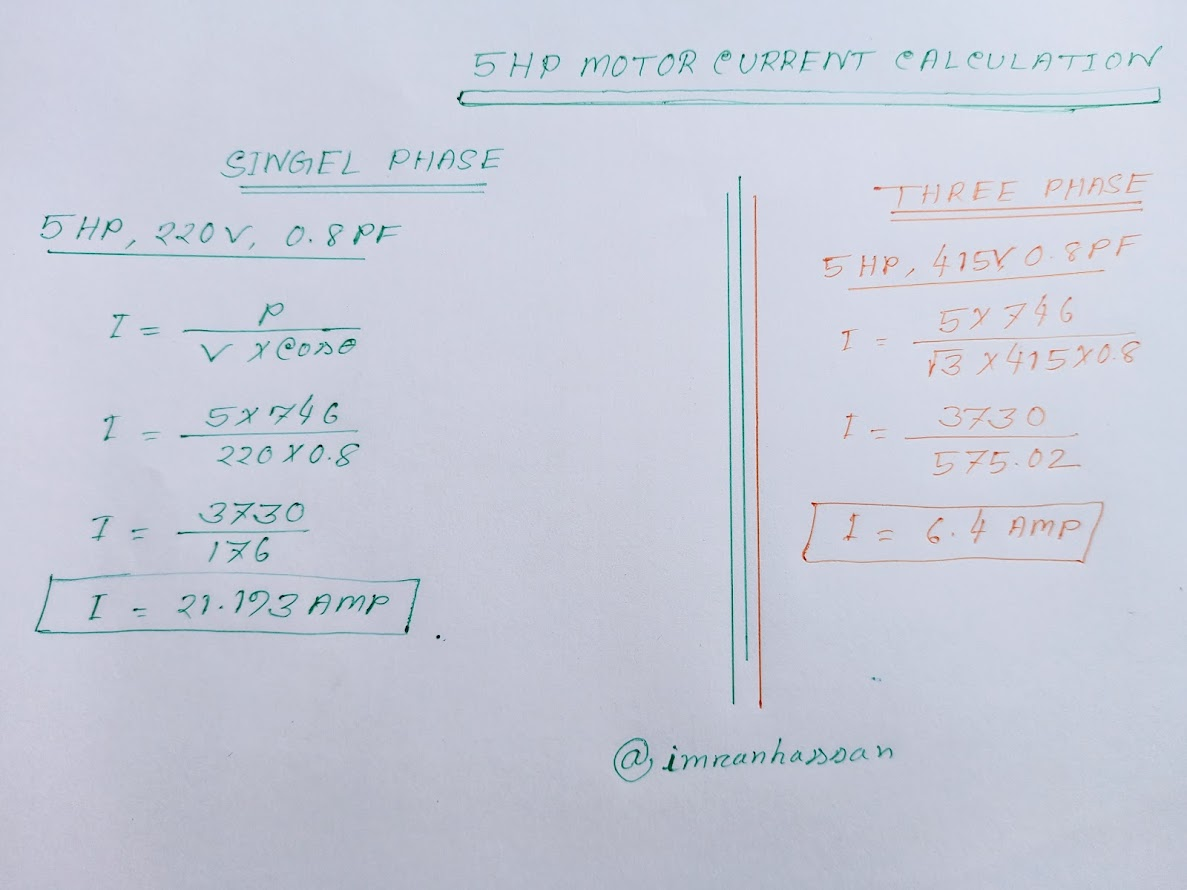 5 HP MOTOR CURRENT CALCULATION
SINGEL PHASE
5 HP, 220V, 0.8 PF
I = P / V X Cosθ
I = 5X746 / 220X0.8
I = 3730 / 176
I = 21.193 AMP
THREE PHASE
5 HP, 415V, 0.8PF
I = 5X746 / √3 X 415X0.8
I = 3730 / 575.02
I = 6.4 AMP
@imranhassan